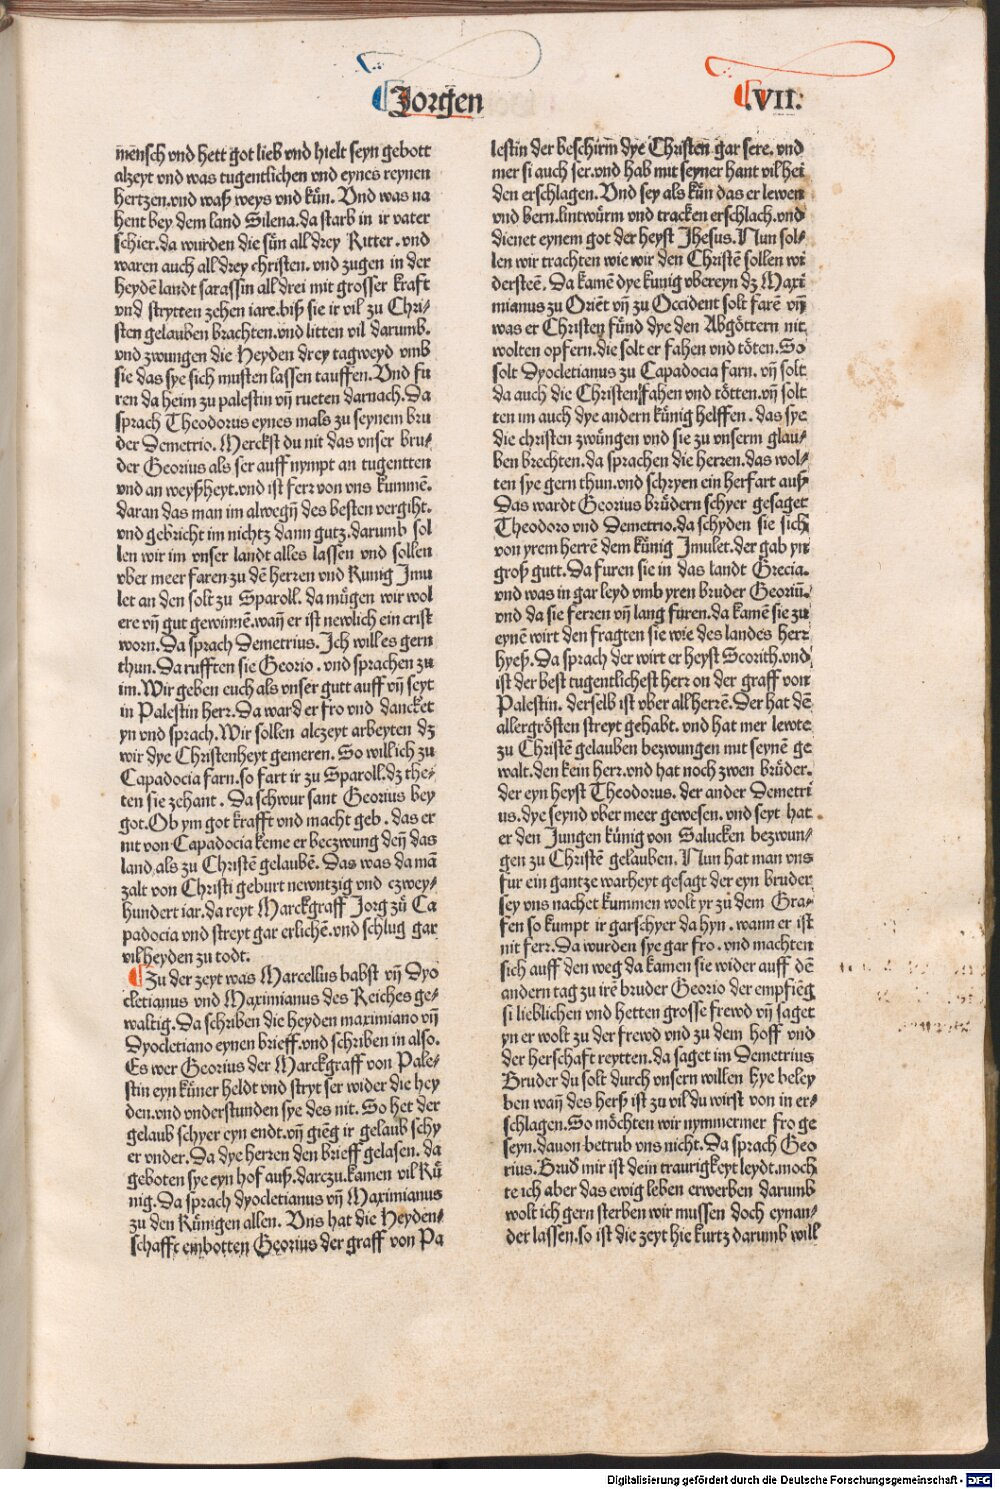 Jorgen
.VII.
mensch vnd hett got lieb vnd hielt seyn gebott
alzeyt vnd was tugentlichen vnd eynes reynen
hertzen.vnd waß weys vnd kůn. Vnd was na
hent bey dem land Silena.da starb in ir vater
schier.da wurden die sün all drey Ritter.vnd
waren auch all drey christen.vnd zugen in der
heydē landt sarassin all drei mit grosser kraft
vnd strytten zehen iare.biß sie ir vil zu Chri⸗
sten gelauben brachten.vnd litten vil darumb.
vnd zwungen die Heyden drey tagweyd vmb
sie das sye sich musten lassen tauffen.Vnd fu
ren da heim zu palestin vn̄ rueten darnach.Da
sprach Theodorus eynes mals zu seynem bru
der Demetrio.Merckst du nit das vnser bru⸗
der Georius als ser auff nympt an tugentten
vnd an weyßheyt.vnd ist ferr von vns kummē.
daran das man im alwegn̄ des besten vergiht.
vnd gebricht im nichtz dann gutz.darumb sol
len wir im vnser landt alles lassen vnd sollen
vber meer faren zu dē herren vnd Kunig Jmu
let an den solt zu Sparoll.da mügen wir wol
ere vn̄ gut gewinnē.wan̄ er ist newlich ein crist
worn.Da sprach Demetrius.Jch will es gern
thun.Da rufften sie Georio.vnd sprachen zu
im.Wir geben euch als vnser gutt auff vn̄ seyt
in Palestin herr.Da ward er fro vnd dancket
yn vnd sprach.Wir sollen alczeyt arbeyten dz
wir dye Christenheyt gemeren.So will ich zu
Capadocia farn.so fart ir zu Sparoll.dz the⸗
ten sie zehant.Da schwur sant Georius bey
got.Ob ym got krafft vnd macht geb.das er
nit von Capadocia keme er beczwung den̄ das
land als zu Christē gelaubē.Das was da mā
zalt von Christi geburt newntzig vnd czwey⸗
hundert iar.da reyt Marckgraff Jorg zů Ca
padocia vnd streyt gar erlichē.vnd schlug gar
vil heyden zu todt.
Zu der zeyt was Marcellus babst vn̄ Dyo
cletianus vnd Maximianus des Reiches ge⸗
waltig.Da schriben die heyden maximiano vn̄
Dyocletiano eynen brieff.vnd schriben in also.
Es wer Georius der Marckgraff von Pale⸗
stin eyn kůner heldt vnd stryt ser wider die hey
den.vnd vnderstunden sye des nit.So het der
gelaub schyer eyn endt.vn̄ gieng ir gelaub schy
er vnder.Da dye herren den brieff gelasen.da
geboten sye eyn hof auß.darczu.kamen vil Kü
nig.Da sprach dyocletianus vn̄ Maximianus
zu den Künigen allen.Vns hat die Heyden⸗
schafft embotten Georius der graff von Pa
lestin der beschirm̄ dye Christen gar sere.vnd
mer si auch ser.vnd hab mit seyner hant vil hei
den erschlagen.Vnd sey als kůn das er lewen
vnd bern.lintwürm vnd tracken erschlach.vnd
dienet eynem got der heyst Jhesus.Nun sol⸗
len wir trachten wie wir den Christē sollen wi
dersteē.Da kamē dye kunig vbereyn dz Maxi
mianus zu Oriēt vn̄ zu Occident solt farē vn̄
was er Christen fünd dye den Abgöttern nit
wolten opfern.die solt er fahen vnd töten.So
solt Dyocletianus zu Capadocia farn.vn̄ solt
da auch die Christen fahen vnd tötten.vn̄ solt
ten im auch dye andern künig helffen.das sye
die christen zwüngen vnd sie zu vnserm glau⸗
ben brechten.da sprachen die herren.das wol⸗
ten sye gern thun.vnd schryen ein herfart auß
Das wardt Georius brüdern schyer gesaget
Theodoro vnd Demetrio.da schyden sie sich
von yrem herrē dem künig Jmulet.der gab yn
groß gutt.Da furen sie in das landt Grecia.
vnd was in gar leyd vmb yren bruder Georiū.
vnd da sie ferren vn̄ lang füren.da kamē sie zu
eynē wirt den fragten sie wie des landes herr
hyeß.Da sprach der wirt er heyst Scorith.vnd
ist der best tugentlichest herr on der graff von
Palestin.derselb ist vber all herrē.Der hat dē
allergrösten streyt gehabt.vnd hat mer lewte
zu Christē gelauben bezwungen mit seynē ge
walt.den kein herr.vnd hat noch zwen brüder.
der eyn heyst Theodorus.der ander Demetri
us.dye seynd vber meer gewesen.vnd seyt hat
er den Jungen künig von Salucken bezwun⸗
gen zu Christē gelauben.Nun hat man vns
fur ein gantze warheyt gesagt der eyn bruder
sey vns nachet kummen wolt yr zů dem Gra⸗
fen so kumpt ir gar schyer da hyn.wann er ist
nit ferr.Da wurden sye gar fro.vnd machten
sich auff den weg da kamen sie wider auff dē
andern tag zu irē bruder Georio der empfieng
si lieblichen vnd hetten grosse frewd vn̄ saget
yn er wolt zu der frewd vnd zu dem hoff vnd
der herschaft reytten.da saget im Demetrius
Bruder du solt durch vnsern willen hye beley
ben wan̄ des herß ist zu vil du wirst von in er⸗
schlagen.So möchten wir nymmermer fro ge
seyn.dauon betrub vns nicht.Da sprach Geo
rius.Brud̄ mir ist dein traurigkeyt leydt.moch
te ich aber das ewig leben erwerben darumb
wolt ich gern sterben wir mussen doch eynan⸗
der lassen.so ist die zeyt hie kurtz darumb will
Digitalisierung gefördert durch die Deutsche Forschungsgemeinschaft - DFG